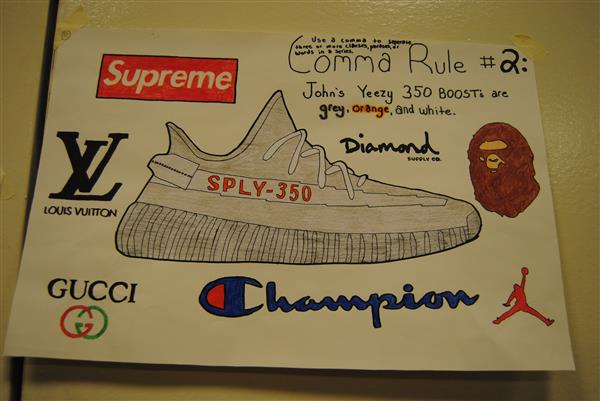 Use a comma to seperate
three or more clauses, phrases, or
words in a series.
Comma Rule #2:
John's Yeezy 350 BOOST's are
grey, orange, and white.
Supreme
Diamond
SUPPLY CO.
LV
LOUIS VUITTON
SPLY-350
GUCCI
Champion